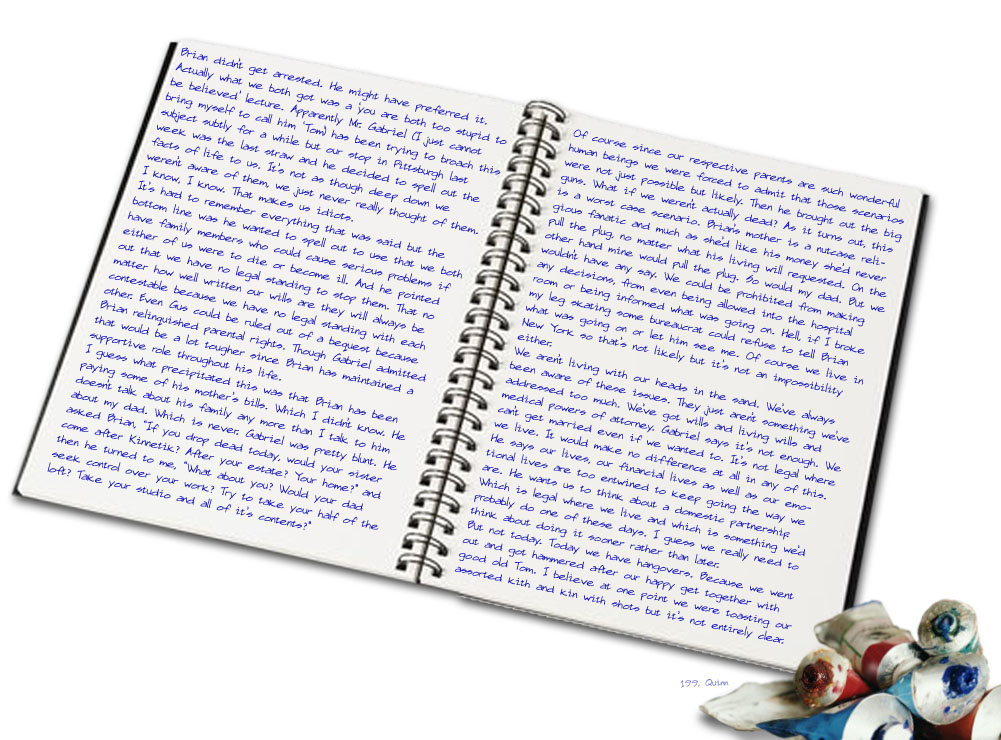 Brian didn't get arrested. He might have preferred it.
Actually what we both got was a 'you are both too stupid to
be believed' lecture. Apparently Mr. Gabriel (I just cannot
bring myself to call him 'Tom') has been trying to broach this
subject subtly for a while but our stop in Pittsburgh last
week was the last straw and he decided to spell out the
facts of life to us. It's not as though deep down we
weren't aware of them, we just never really thought of them.
I know, I know. That makes us idiots.
It's hard to remember everything that was said but the
bottom line was he wanted to spell out to use that we both
have family members who could cause serious problems if
either of us were to die or become ill. And he pointed
out that we have no legal standing to stop them. That no
matter how well written our wills are they will always be
contestable because we have no legal standing with each
other. Even Gus could be ruled out of a bequest because
Brian relinquished parental rights. Though Gabriel admitted
that would be a lot tougher since Brian has maintained a
supportive role throughout his life.
I guess what precipitated this was that Brian has been
paying some of his mother's bills. Which I didn't know. He
doesn't talk about his family any more than I talk to him
about my dad. Which is never. Gabriel was pretty blunt. He
asked Brian, "If you drop dead today, would your sister
come after Kinnetik? After your estate? Your home?" and
then he turned to me, "What about you? Would your dad
seek control over your work? Try to take your half of the
loft? Take your studio and all of it's contents?"
Of course since our respective parents are such wonderful
human beings we were forced to admit that those scenarios
were not just possible but likely. Then he brought out the big
guns. What if we weren't actually dead? As it turns out, this
is a worst case scenario. Brian's mother is a nutcase reli-
gious fanatic and much as she'd like his money she'd never
pull the plug, no matter what his living will requested. On the
other hand mine would pull the plug. So would my dad. But we
wouldn't have any say. We could be prohibited from making
any decisions, from even being allowed into the hospital
room or being informed what was going on. Hell, if I broke
my leg skating some bureaucrat could refuse to tell Brian
what was going on or let him see me. Of course we live in
New York so that's not likely but it's not an impossibility
either.
We aren't living with our heads in the sand. We've always
been aware of these issues. They just aren't something we've
addressed too much. We've got wills and living wills and
medical powers of attorney. Gabriel says it's not enough. We
can't get married even if we wanted to. It's not legal where
we live. It would make no difference at all in any of this.
He says our lives, our financial lives as well as our emo-
tional lives are too entwined to keep going the way we
are. He wants us to think about a domestic partnership.
Which is legal where we live and which is something we'd
probably do one of these days. I guess we really need to
think about doing it sooner rather than later.
But not today. Today we have hangovers. Because we went
out and got hammered after our happy get together with
good old Tom. I believe at one point we were toasting our
assorted kith and kin with shots but it's not entirely clear.
199. Quinn